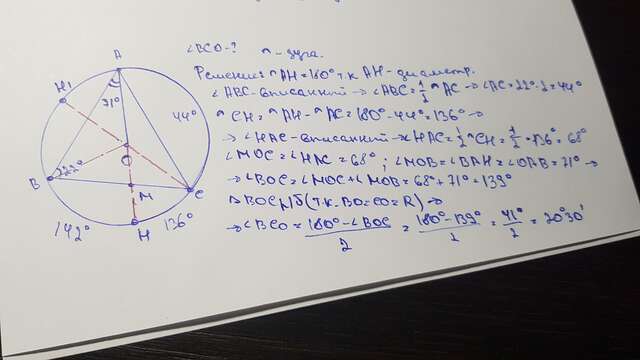 ∠BCO-? ◠-дуга.
Решение: ◠AH=180° т.к AH-диаметр.
∠ABC-вписанный → ∠ABC=1/2 ◠AC → ◠AC=22°·2=44°
◠CH=◠AH-◠AC=180°-44°=136° →
→ ∠HAC-вписанный → ∠HAC=1/2 ◠CH=1/2·136°=68°
∠MOC=∠HAC=68°; ∠MOB=∠BAH=∠OAB=71° →
→ ∠BOC=∠MOC+∠MOB=68°+71°=139°
△BOC р/б (т.к. BO=CO=R) →
→ ∠BCO=(180°-∠BOC)/2=(180°-139°)/2=41°/2=20°30'
A
H₁
71°
44°
O
B
22°
M
C
142°
H
136°